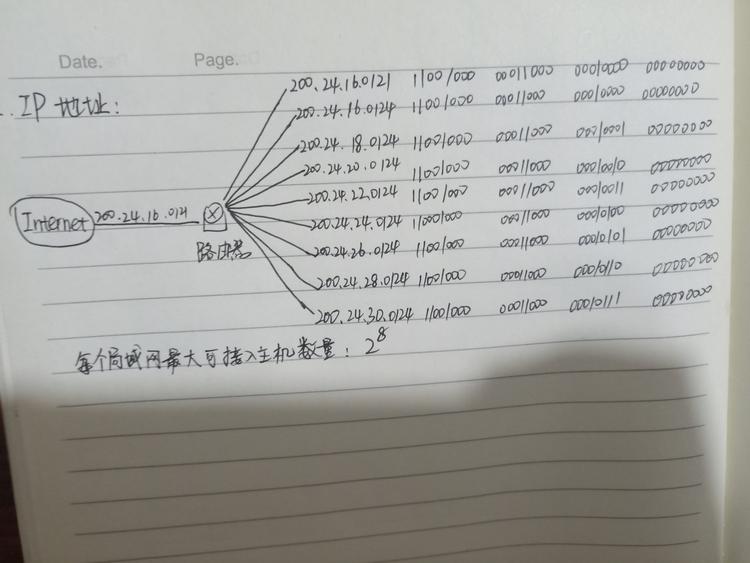 Date.
Page.
IP 地址：
200.24.16.0/21 11001000 00011000 00010000 00000000
200.24.16.0/24 11001000 00011000 00010000 00000000
200.24.18.0/24 11001000 00011000 00010001 00000000
200.24.20.0/24 11001000 00011000 00010010 00000000
200.24.22.0/24 11001000 00011000 00010011 00000000
Internet 200.24.16.0/21
路由器
200.24.24.0/24 11001000 00011000 00010100 00000000
200.24.26.0/24 11001000 00011000 00010101 00000000
200.24.28.0/24 11001000 00011000 00010110 00000000
200.24.30.0/24 11001000 00011000 00010111 00000000
每个局域网最大可接入主机数量：2⁸